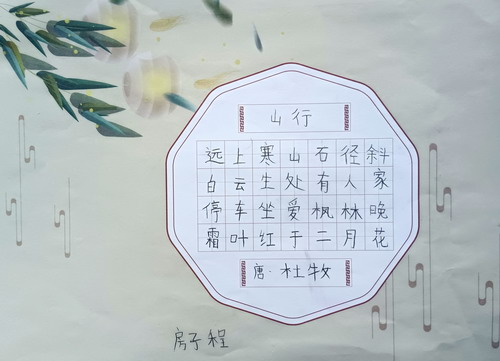 山行
远上寒山石径斜
白云生处有人家
停车坐爱枫林晚
霜叶红于二月花
唐·杜牧
房子程